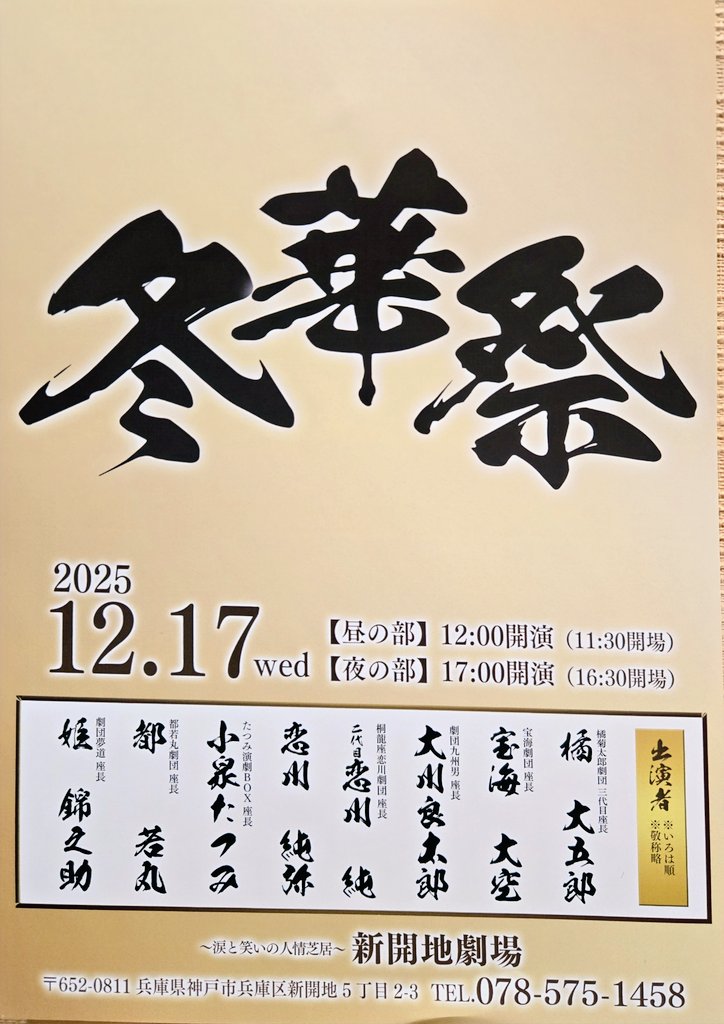 冬華祭
2025
12.17wed
【昼の部】12:00開演（11:30開場）
【夜の部】17:00開演（16:30開場）
出演者
※いろは順
※敬称略
橘菊太郎劇団 三代目座長
橘 大五郎
宝海劇団 座長
宝海 大空
劇団九州男 座長
大川良太郎
桐龍座恋川劇団 座長
二代目恋川 純
恋川 純弥
たつみ演劇BOX 座長
小泉たつみ
都若丸劇団 座長
都 若丸
劇団夢道 座長
姫 錦之助
～涙と笑いの人情芝居～ 新開地劇場
〒652-0811 兵庫県神戸市兵庫区新開地5丁目2-3 TEL.078-575-1458